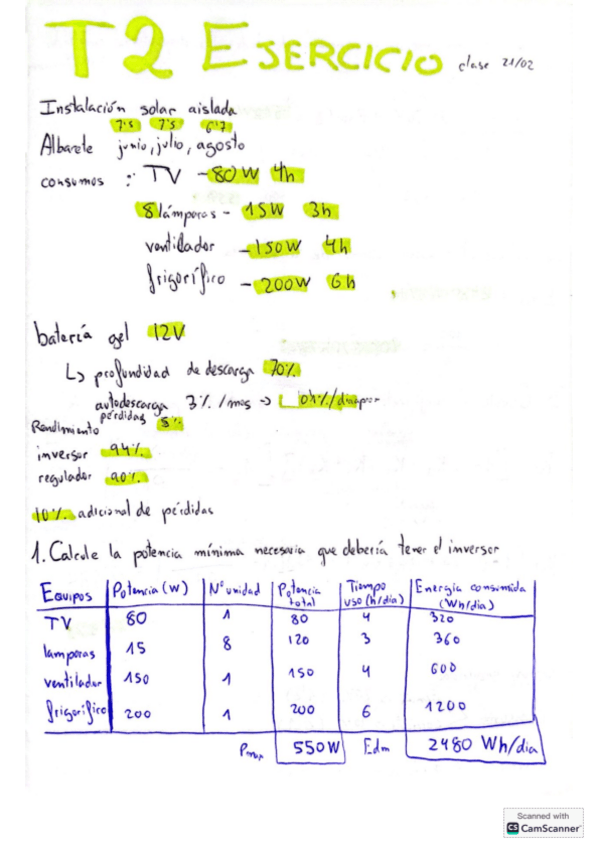 T2 EJERCICIO clase 21/02
Instalación solar aislada
7'5 7'5 6'7
Albacete junio, julio, agosto
consumos : TV - 80W 4h
8 lámparas - 15W 3h
ventilador - 150W 4h
frigorífico - 200W 6h
batería gel 12V
↳ profundidad de descarga 70%
autodescarga 3% /mes →
pérdidas 5%
Rendimiento
inversor 94%
regulador 90%
10% adicional de pérdidas
1. Calcule la potencia mínima necesaria que debería tener el inversor
Equipos Potencia (W) Nº unidad Potencia total Tiempo uso (h/dia) Energía consumida (Wh/dia)
TV 80 1 80 4 320
lamparas 15 8 120 3 360
ventilador 150 1 150 4 600
frigorífico 200 1 200 6 1200
Pmax 550W Edm 2480 Wh/dia
Scanned with
CS CamScanner